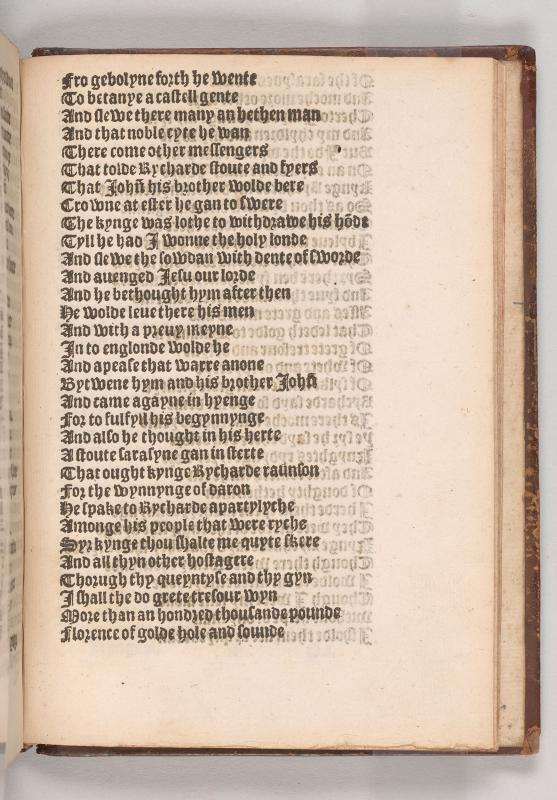 Fro gebolyne forth he wente
To betanye a castell gente
And slewe there many an hethen man
And that noble cyte he wan
There come other messengers
That tolde Rycharde stoute and fyers
That Johñ his brother wolde bere
Crowne at ester he gan to swere
The kynge was lothe to withdrawe his hõde
Tyll he had J wonne the holy londe
And slewe the sowdan with dente of sworde
And auenged Jesu our lorde
And he bethought hym after then
He wolde leue there his men
And with a preuy meyne
Jn to englonde wolde he
And apease that warre anone
Bytwene hym and his brother Johñ
And came agayne in hyenge
For to fulfyll his begynnynge
And also he thought in his herte
A stoute sarasyne gan in sterte
That ought kynge Rycharde raũnson
For the wynnynge of daron
He spake to Rycharde apartylyche
Amonge his people that were ryche
Syr kynge thou shalte me quyte skere
And all thyn other hostagere
Thorugh thy queyntyse and thy gyn
J shall the do grete tresour wyn
More than an hondred thousande pounde
Florence of golde hole and sounde